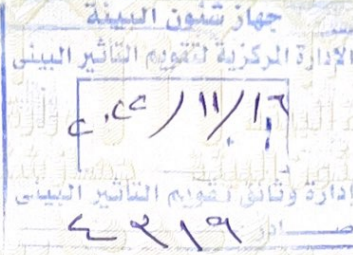 جهاز شئون البيئة
الإدارة المركزية لتقويم التأثير البيئى
٢٠٢٢/١١/١٦
إدارة وثائق تقويم التأثير البيئى
صادر ٤٣١٩